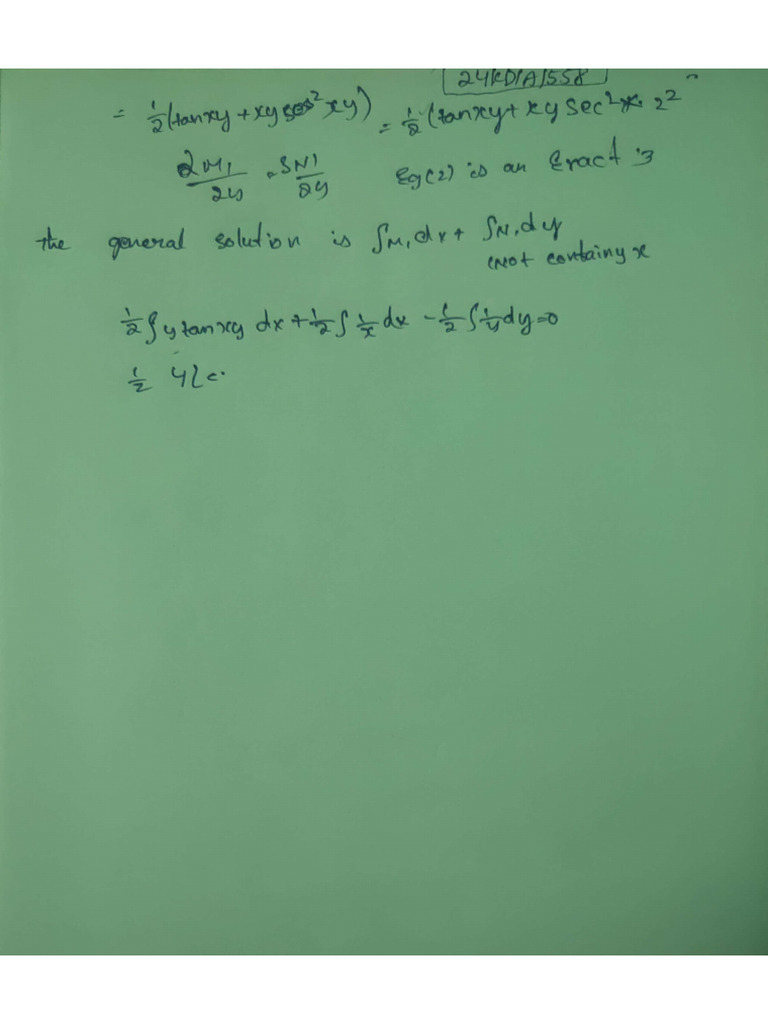 24KD1A1558
= 1/2 (tanxy + xy sec² xy) = 1/2 (tanxy + xy sec² x. 2²
2M1/2y = SN1/2y Eq(2) is an Exact
the general solution is ∫M1dx + ∫N1dy
(Not containy x
1/2 ∫y tanxy dx + 1/2 ∫ 1/x dx - 1/2 ∫ 1/y dy = 0
1/2